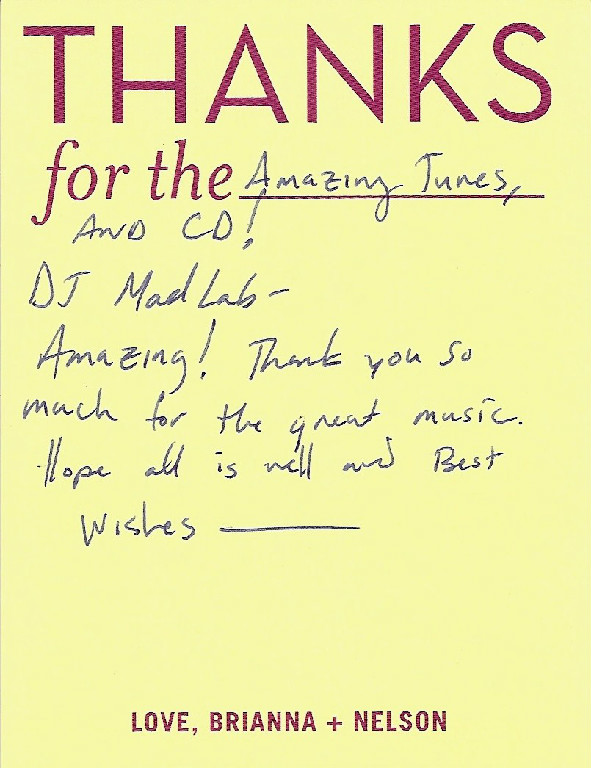 THANKS
for the Amazing Tunes,
AND CD!
DJ MadLab-
Amazing! Thank you so
much for the great music.
Hope all is well and Best
Wishes
LOVE, BRIANNA + NELSON